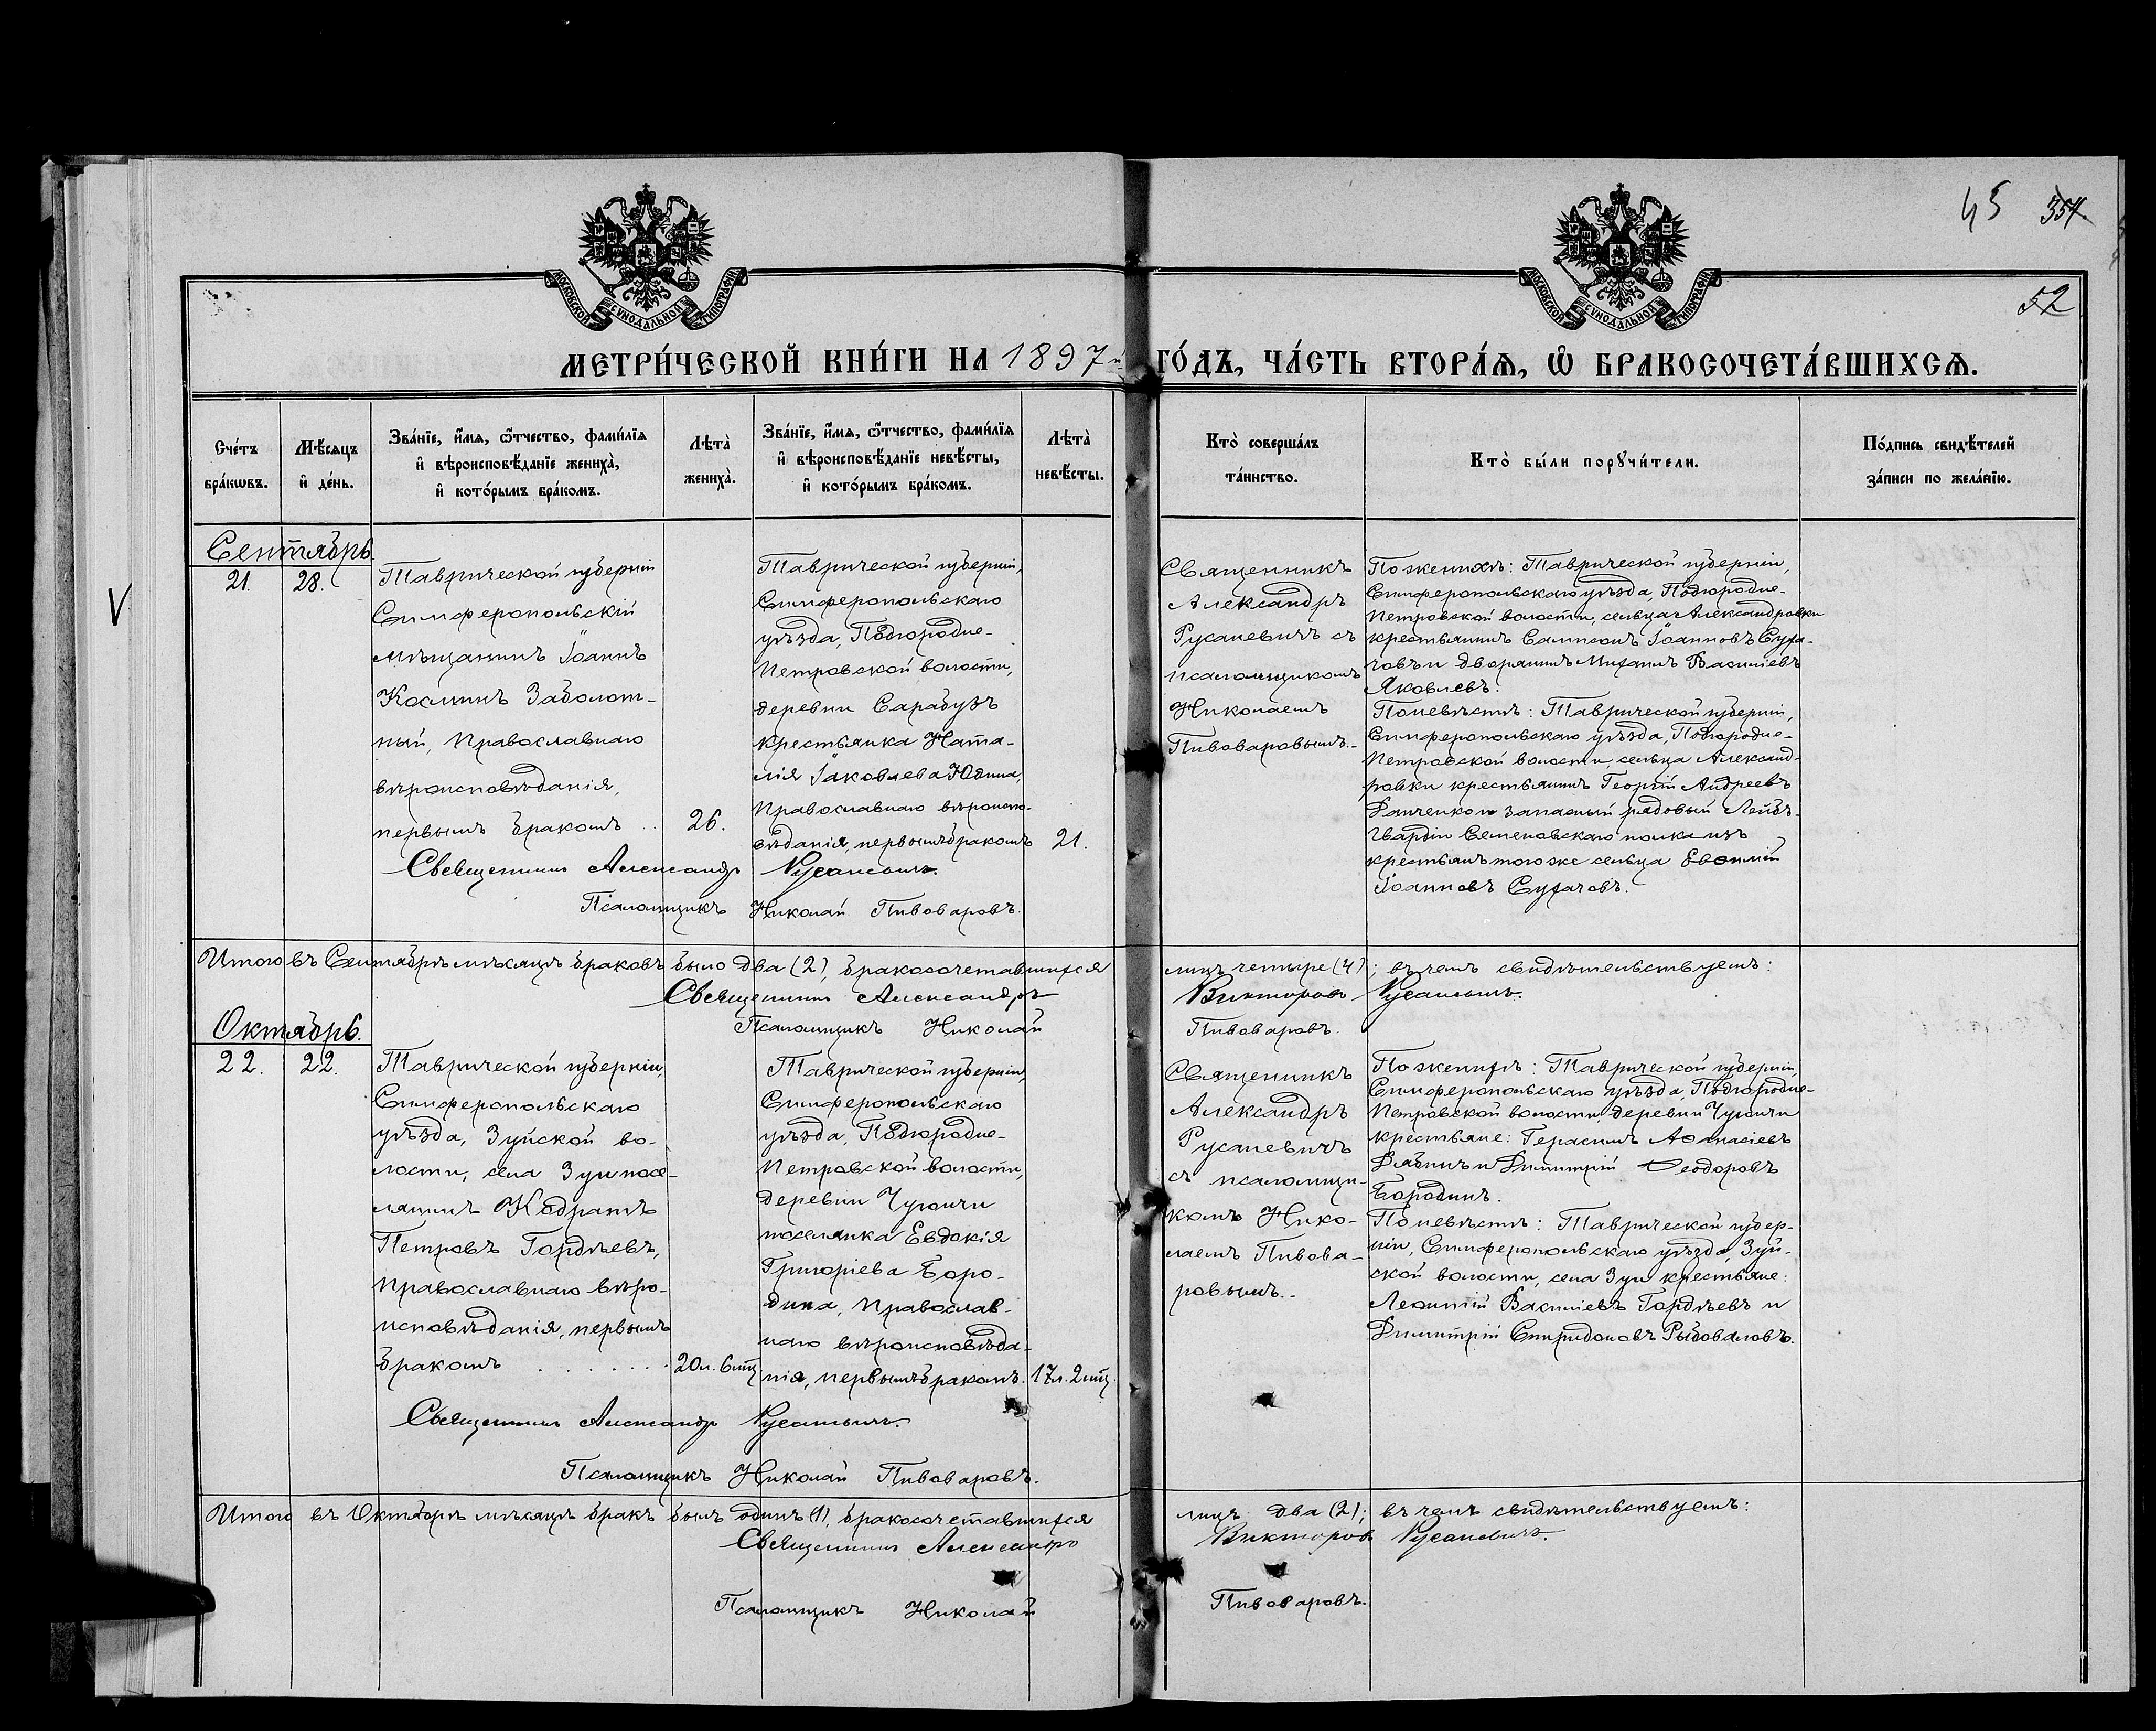 45 354
52
МОСКОВСКОЙ СѴНОДАЛЬНОЙ ТИПОГРАФІИ
МОСКОВСКОЙ СѴНОДАЛЬНОЙ ТИПОГРАФІИ
МЕТРИ́ЧЕСКОЙ КНИ́ГИ НА 1897й ГО́ДЪ, ЧА́СТЬ ВТОРА́Ѧ, Ѡ҆ БРАКОСОЧЕТА́ВШИХСѦ.
Сче́тъ
бра́кѡвъ.
Мѣ́сяцъ
и҆ де́нь.
Зва́нїе, и҆́мѧ, ѻ҆́тчество, фами́лїѧ
и҆ вѣроисповѣ́данїе жениха̀,
и҆ кото́рымъ бра́комъ.
Лѣта̀
жениха̀.
Зва́нїе, и҆́мѧ, ѻ҆́тчество, фами́лїѧ
и҆ вѣроисповѣ́данїе невѣ́сты,
и҆ кото́рымъ бра́комъ.
Лѣта̀
невѣ́сты.
Кто̀ соверша́лъ
та́инство.
Кто̀ бы́ли порꙋчи́тели.
По́дпись свидѣ́телей
за́писи по жела́нїю.
Сентябрь.
21.
28.
Таврической губерніи
Симферопольскій
мѣщанинъ Іоаннъ
Косминъ Заболот-
ный, Православнаго
вѣроисповѣданія,
первымъ бракомъ ..
26.
Таврической губерніи,
Симферопольскаго
уѣзда, Подгородне-
Петровской волости,
деревни Сарабузъ
крестьянка Ната-
лія Іаковлева Юдина,
Православнаго вѣроиспо-
вѣданія, первымъ бракомъ
21.
Священникъ
Александръ
Русаневичъ съ
псаломщикомъ
Николаемъ
Пивоваровымъ.-
По женихѣ: Таврической губерніи,
Симферопольскаго уѣзда, Подгородне-
Петровской волости, сельца Александровки
крестьянинъ Сампсонъ Іоанновъ Суха-
човъ и дворянинъ Михаилъ Василіевъ
Яковлевъ.
По невѣстѣ: Таврической губерніи,
Симферопольскаго уѣзда, Подгородне-
Петровской волости, сельца Александ-
ровки крестьянинъ Георгій Андреевъ
Данченко и запасный рядовый Лейбъ-
Гвардіи Семеновскаго полка изъ
крестьянъ того же сельца Евѳимій
Іоанновъ Сухачовъ.
Священникъ Александръ Русаневичъ.
Псаломщикъ Николай Пивоваровъ.
Итого въ Сентябрѣ мѣсяцѣ браковъ было два (2), бракосочетавшихся лицъ четыре (4); въ чемъ свидѣтельствуемъ:
Священникъ Александръ Викторовъ Русаневичъ.
Псаломщикъ Николай Пивоваровъ.
Октябрь.
22.
22.
Таврической губерніи,
Симферопольскаго
уѣзда, Зуйской во-
лости, села Зуи посе-
лянинъ Кодратъ
Петровъ Гордѣевъ,
Православнаго вѣро-
исповѣданія, первымъ
бракомъ . . . . . . .
20 л. 6 мц.
Таврической губерніи,
Симферопольскаго
уѣзда, Подгородне-
Петровской волости,
деревни Чуюнчи
поселянка Евдокія
Григоріева Боро-
дина, Православ-
наго вѣроисповѣда-
нія, первымъ бракомъ.
17 л. 2 мц.
Священникъ
Александръ
Русаневичъ
съ псаломщи-
комъ Нико-
лаемъ Пивова-
ровымъ.-
По женихѣ: Таврической губерніи,
Симферопольскаго уѣзда, Подгородне-
Петровской волости, деревни Чуюнчи
крестьяне: Герасимъ Аѳанасіевъ
Дябинъ и Димитрій Ѳеодоровъ
Бородинъ.
По невѣстѣ: Таврической губер-
ніи, Симферопольскаго уѣзда, Зуй-
ской волости, села Зуи крестьяне:
Леонтій Василіевъ Гордѣевъ и
Димитрій Спиридоновъ Рыбоваловъ.
Священникъ Александръ Русаневичъ.
Псаломщикъ Николай Пивоваровъ.
Итого въ Октябрѣ мѣсяцѣ бракъ былъ одинъ (1), бракосочетавшихся лицъ два (2); въ чемъ свидѣтельствуемъ:
Священникъ Александръ Викторовъ Русаневичъ.
Псаломщикъ Николай Пивоваровъ.